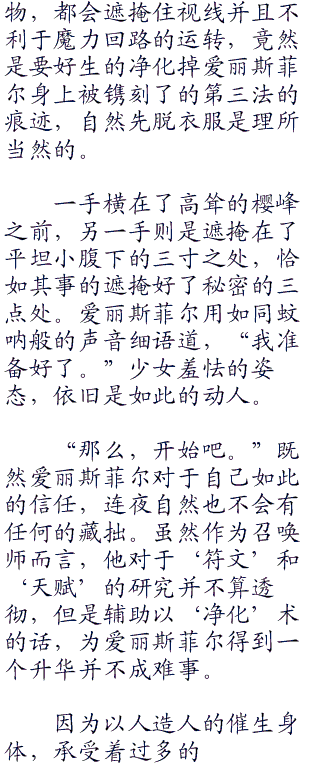 物，都会遮掩住视线并且不
利于魔力回路的运转，竟然
是要好生的净化掉爱丽斯菲
尔身上被镌刻了的第三法的
痕迹，自然先脱衣服是理所
当然的。
一手横在了高耸的樱峰
之前，另一手则是遮掩在了
平坦小腹下的三寸之处，恰
如其事的遮掩好了秘密的三
点处。爱丽斯菲尔用如同蚊
呐般的声音细语道，“我准
备好了。”少女羞怯的姿
态，依旧是如此的动人。
“那么，开始吧。”既
然爱丽斯菲尔对于自己如此
的信任，连夜自然也不会有
任何的藏拙。虽然作为召唤
师而言，他对于‘符文’和
‘天赋’的研究并不算透
彻，但是辅助以‘净化’术
的话，为爱丽斯菲尔得到一
个升华并不成难事。
因为以人造人的催生身
体，承受着过多的